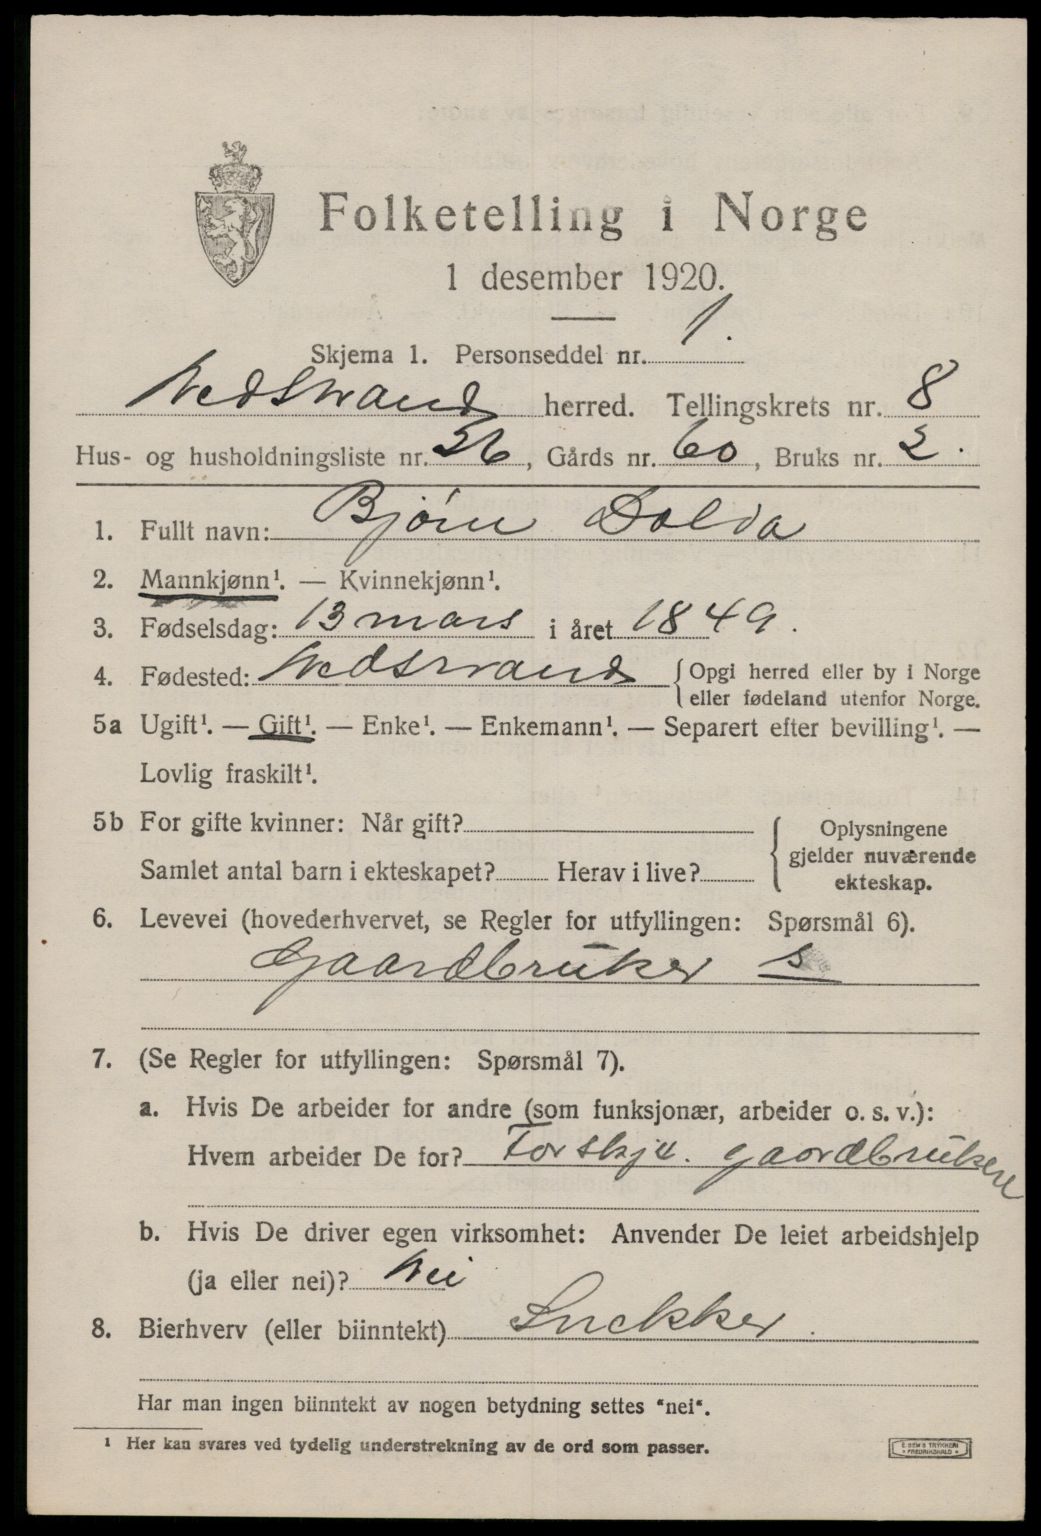 Folketelling i Norge
1 desember 1920.
Skjema 1. Personseddel nr. 1.
Nedstrand herred. Tellingskrets nr. 8
Hus- og husholdningsliste nr. 36, Gårds nr. 60, Bruks nr. 2.
1. Fullt navn: Bjørn Dolva
2. Mannkjønn¹. — Kvinnekjønn¹.
3. Fødselsdag: 13 mars i året 1849.
4. Fødested: Nedstrand {Opgi herred eller by i Norge
eller fødeland utenfor Norge.
5a Ugift¹. — Gift¹. — Enke¹. — Enkemann¹. — Separert efter bevilling¹. —
Lovlig fraskilt¹.
5b For gifte kvinner: Når gift?
Samlet antal barn i ekteskapet? Herav i live?
{ Oplysningene
gjelder nuværende
ekteskap.
6. Levevei (hovederhvervet, se Regler for utfyllingen: Spørsmål 6).
Gaardbruker s
7. (Se Regler for utfyllingen: Spørsmål 7).
a. Hvis De arbeider for andre (som funksjonær, arbeider o. s. v.):
Hvem arbeider De for? Forskj. gaardbrukere
b. Hvis De driver egen virksomhet: Anvender De leiet arbeidshjelp
(ja eller nei)? Nei
8. Bierhverv (eller biinntekt) Snekker.
Har man ingen biinntekt av nogen betydning settes "nei".
¹ Her kan svares ved tydelig understrekning av de ord som passer.
E. SEM'S TRYKKERI
FREDRIKSHALD